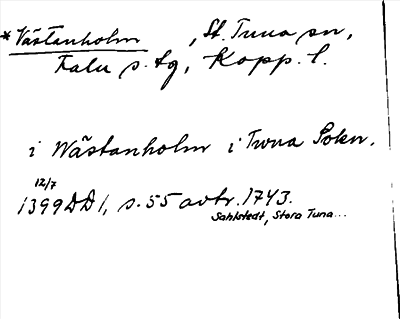 *Västanholm, St. Tuna sn,
Falu s. tg, Kopp. l.
i Wästanholm i Twna Sokn.
12/7
1399 DD 1, s. 55 avtr. 1743.
Sahlstedt, Stora Tuna...